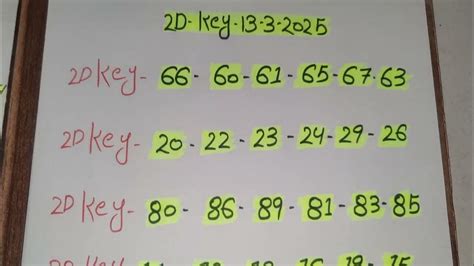 2D-key-13-3-2025
2D key- 66- 60-61-65-67.63
2D key- 20 - 22 - 23 - 24-29-26
2D key- 80 - 86 - 89 - 81-83-85